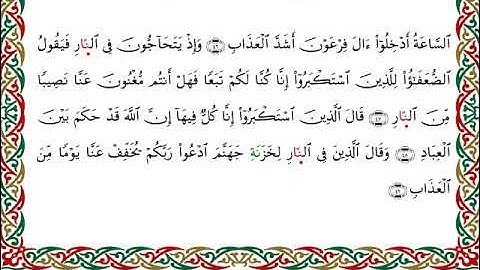 السَّاعَةُ أَدْخِلُوٓا۟ ءَالَ فِرْعَوْنَ أَشَدَّ الْعَذَابِ ۝ وَإِذْ يَتَحَآجُّونَ فِى النَّارِ فَيَقُولُ
الضُّعَفَٰٓؤُا۟ لِلَّذِينَ اسْتَكْبَرُوٓا۟ إِنَّا كُنَّا لَكُمْ تَبَعًا فَهَلْ أَنتُم مُّغْنُونَ عَنَّا نَصِيبًا
مِّنَ النَّارِ ۝ قَالَ الَّذِينَ اسْتَكْبَرُوٓا۟ إِنَّا كُلٌّ فِيهَآ إِنَّ اللَّهَ قَدْ حَكَمَ بَيْنَ
الْعِبَادِ ۝ وَقَالَ الَّذِينَ فِى النَّارِ لِخَزَنَةِ جَهَنَّمَ ادْعُوا۟ رَبَّكُمْ يُخَفِّفْ عَنَّا يَوْمًا مِّنَ
الْعَذَابِ ۝